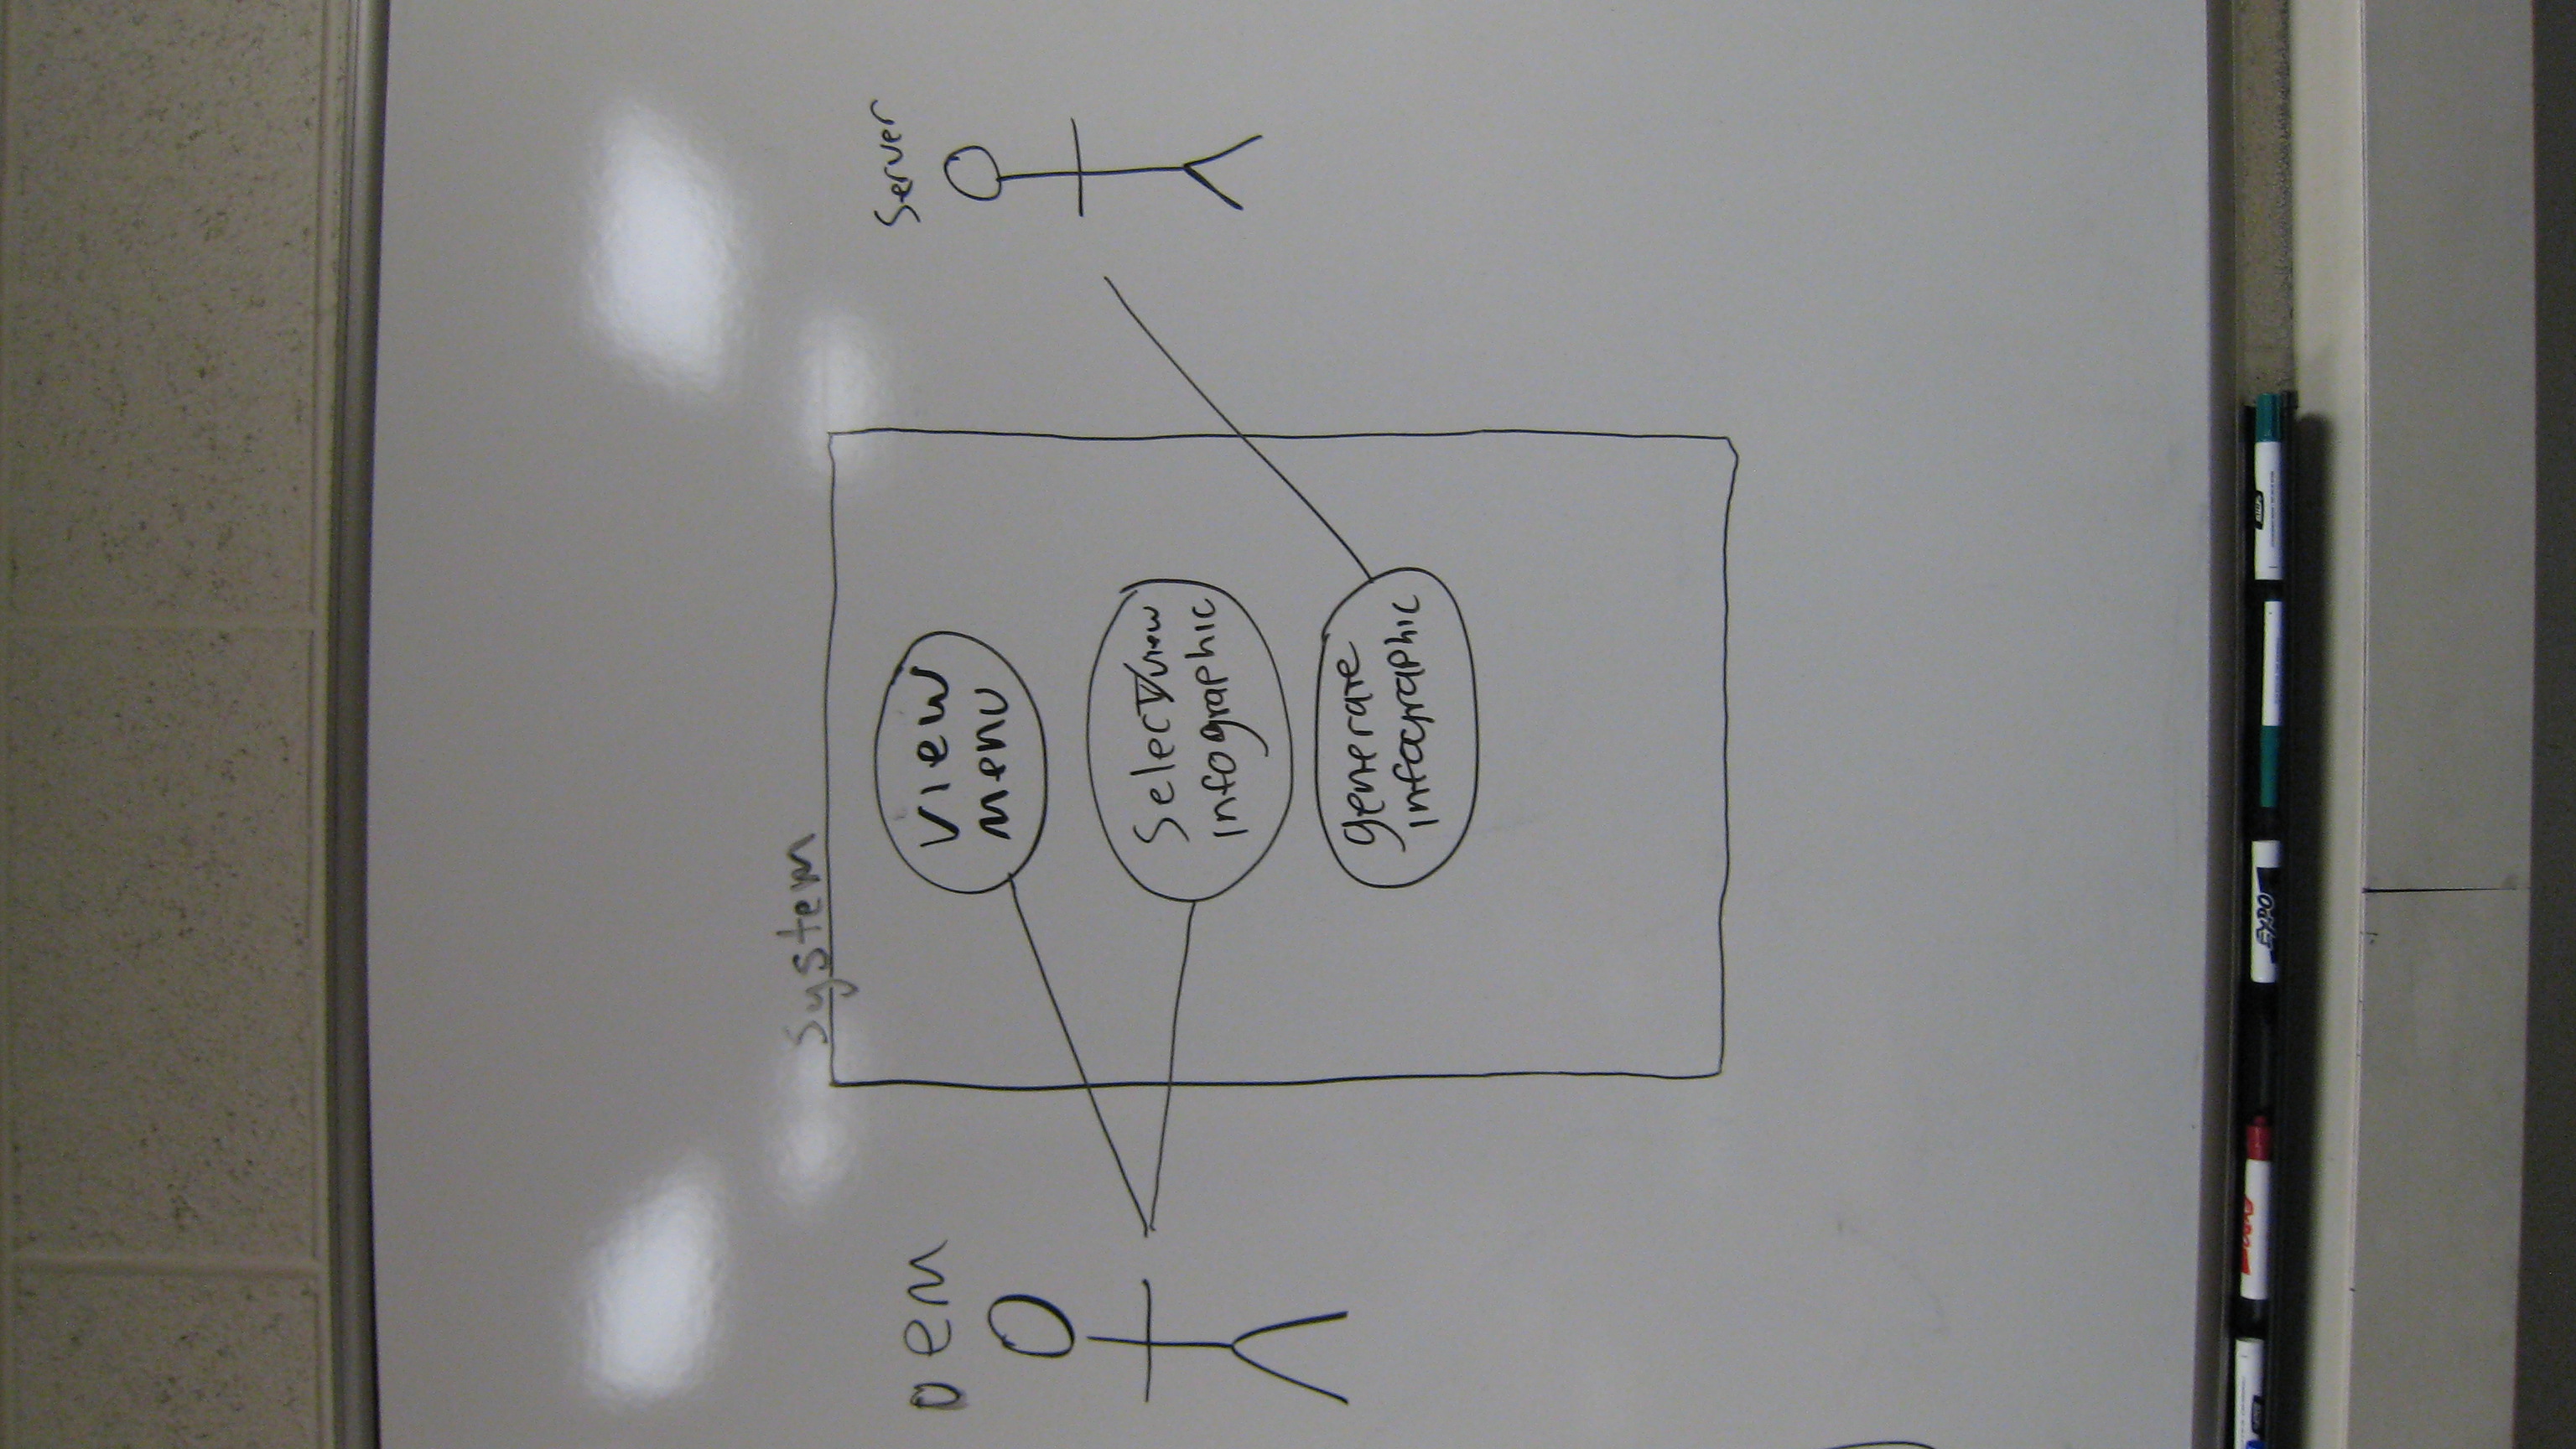 System
OEM
Server
view
menu
Select/view
infographic
generate
infographic
EXPO